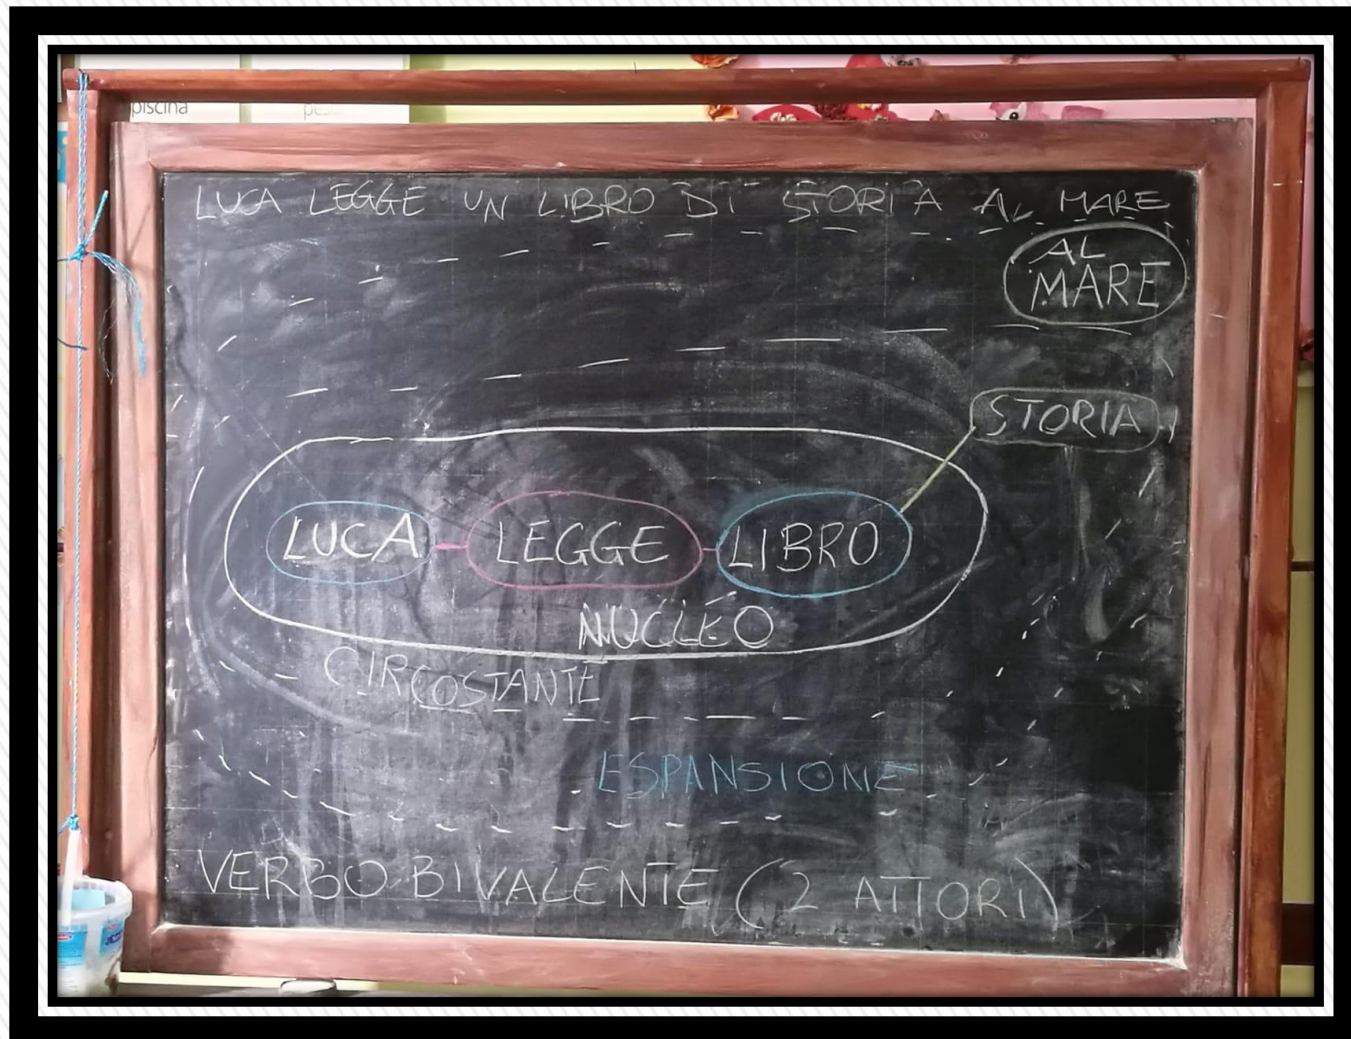 piscina
LUCA LEGGE UN LIBRO DI STORIA AL MARE
AL
MARE
STORIA
LUCA LEGGE LIBRO
NUCLEO
CIRCOSTANTE
ESPANSIONE
VERBO BIVALENTE (2 ATTORI)